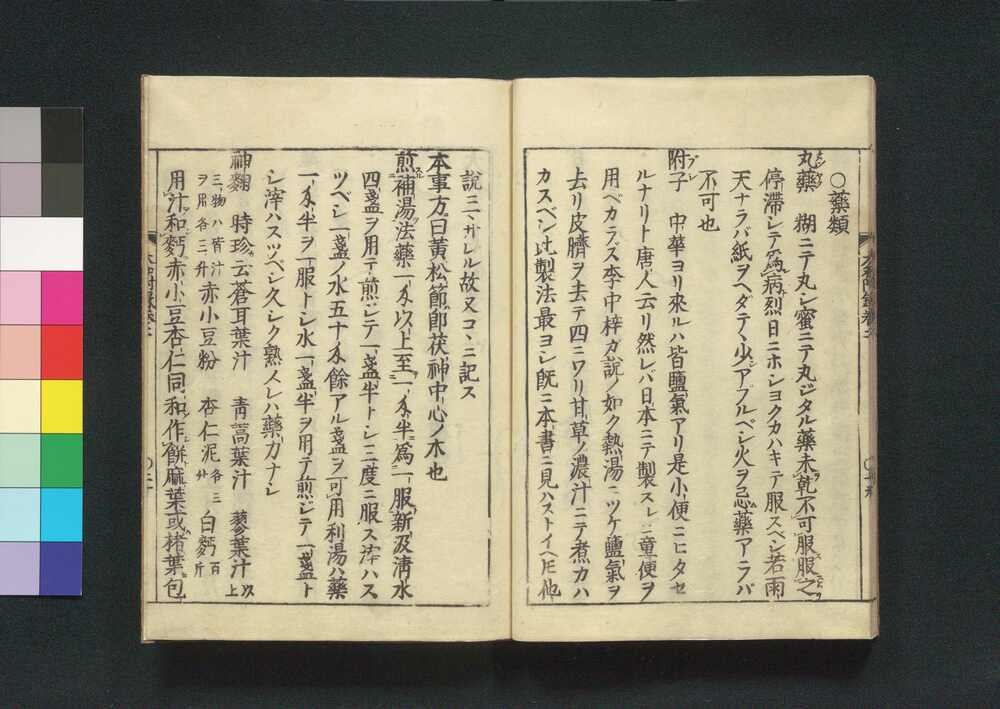 ○藥類
丸藥　糊ニテ丸シ蜜ニテ丸ジタル藥未乾不可服服之
停滯シテ爲病烈日ニホシヨクカハキテ服スベシ若雨
天ナラバ紙ヲヘダテヽ少アブルベシ火ヲ忌藥アラバ
不可也
附子　中華ヨリ來ルハ皆鹽氣アリ是小便ニヒタセ
ルナリト唐人云リ然レバ日本ニテ製スルニ童便ヲ
用ベカラズ李中梓ガ說ノ如ク熱湯ニツケ鹽氣ヲ
去リ皮臍ヲ去テ四ニワリ甘草ノ濃汁ニテ煮カハ
カスベシ此製法最ヨシ旣ニ本書ニ見ハストイヘ𪜈他
說ニ ル故又コヽニ記ス
本事方曰黃松節卽茯神中心ノ木也
煎補湯法藥一 以上至一 半爲一服新汲淸水
四盞ヲ用テ煎ジテ一盞半トシ三度ニ服ス滓ハス
ツベシ一盞ノ水五十 餘アル盞ヲ可用利湯ハ藥
一 半ヲ一服トシ水一盞半ヲ用テ煎ジテ一盞ト
シ滓ハスツベシ久シク熟スレハ藥力ナシ
神麴　時珍云蒼耳葉汁　靑蒿葉汁　蓼葉汁以上
三物ハ皆汁ヲ用各三升赤小豆粉　杏仁泥各三升　白麪百斤
用汁和麪赤小豆杏仁同和作餠麻葉或楮葉包